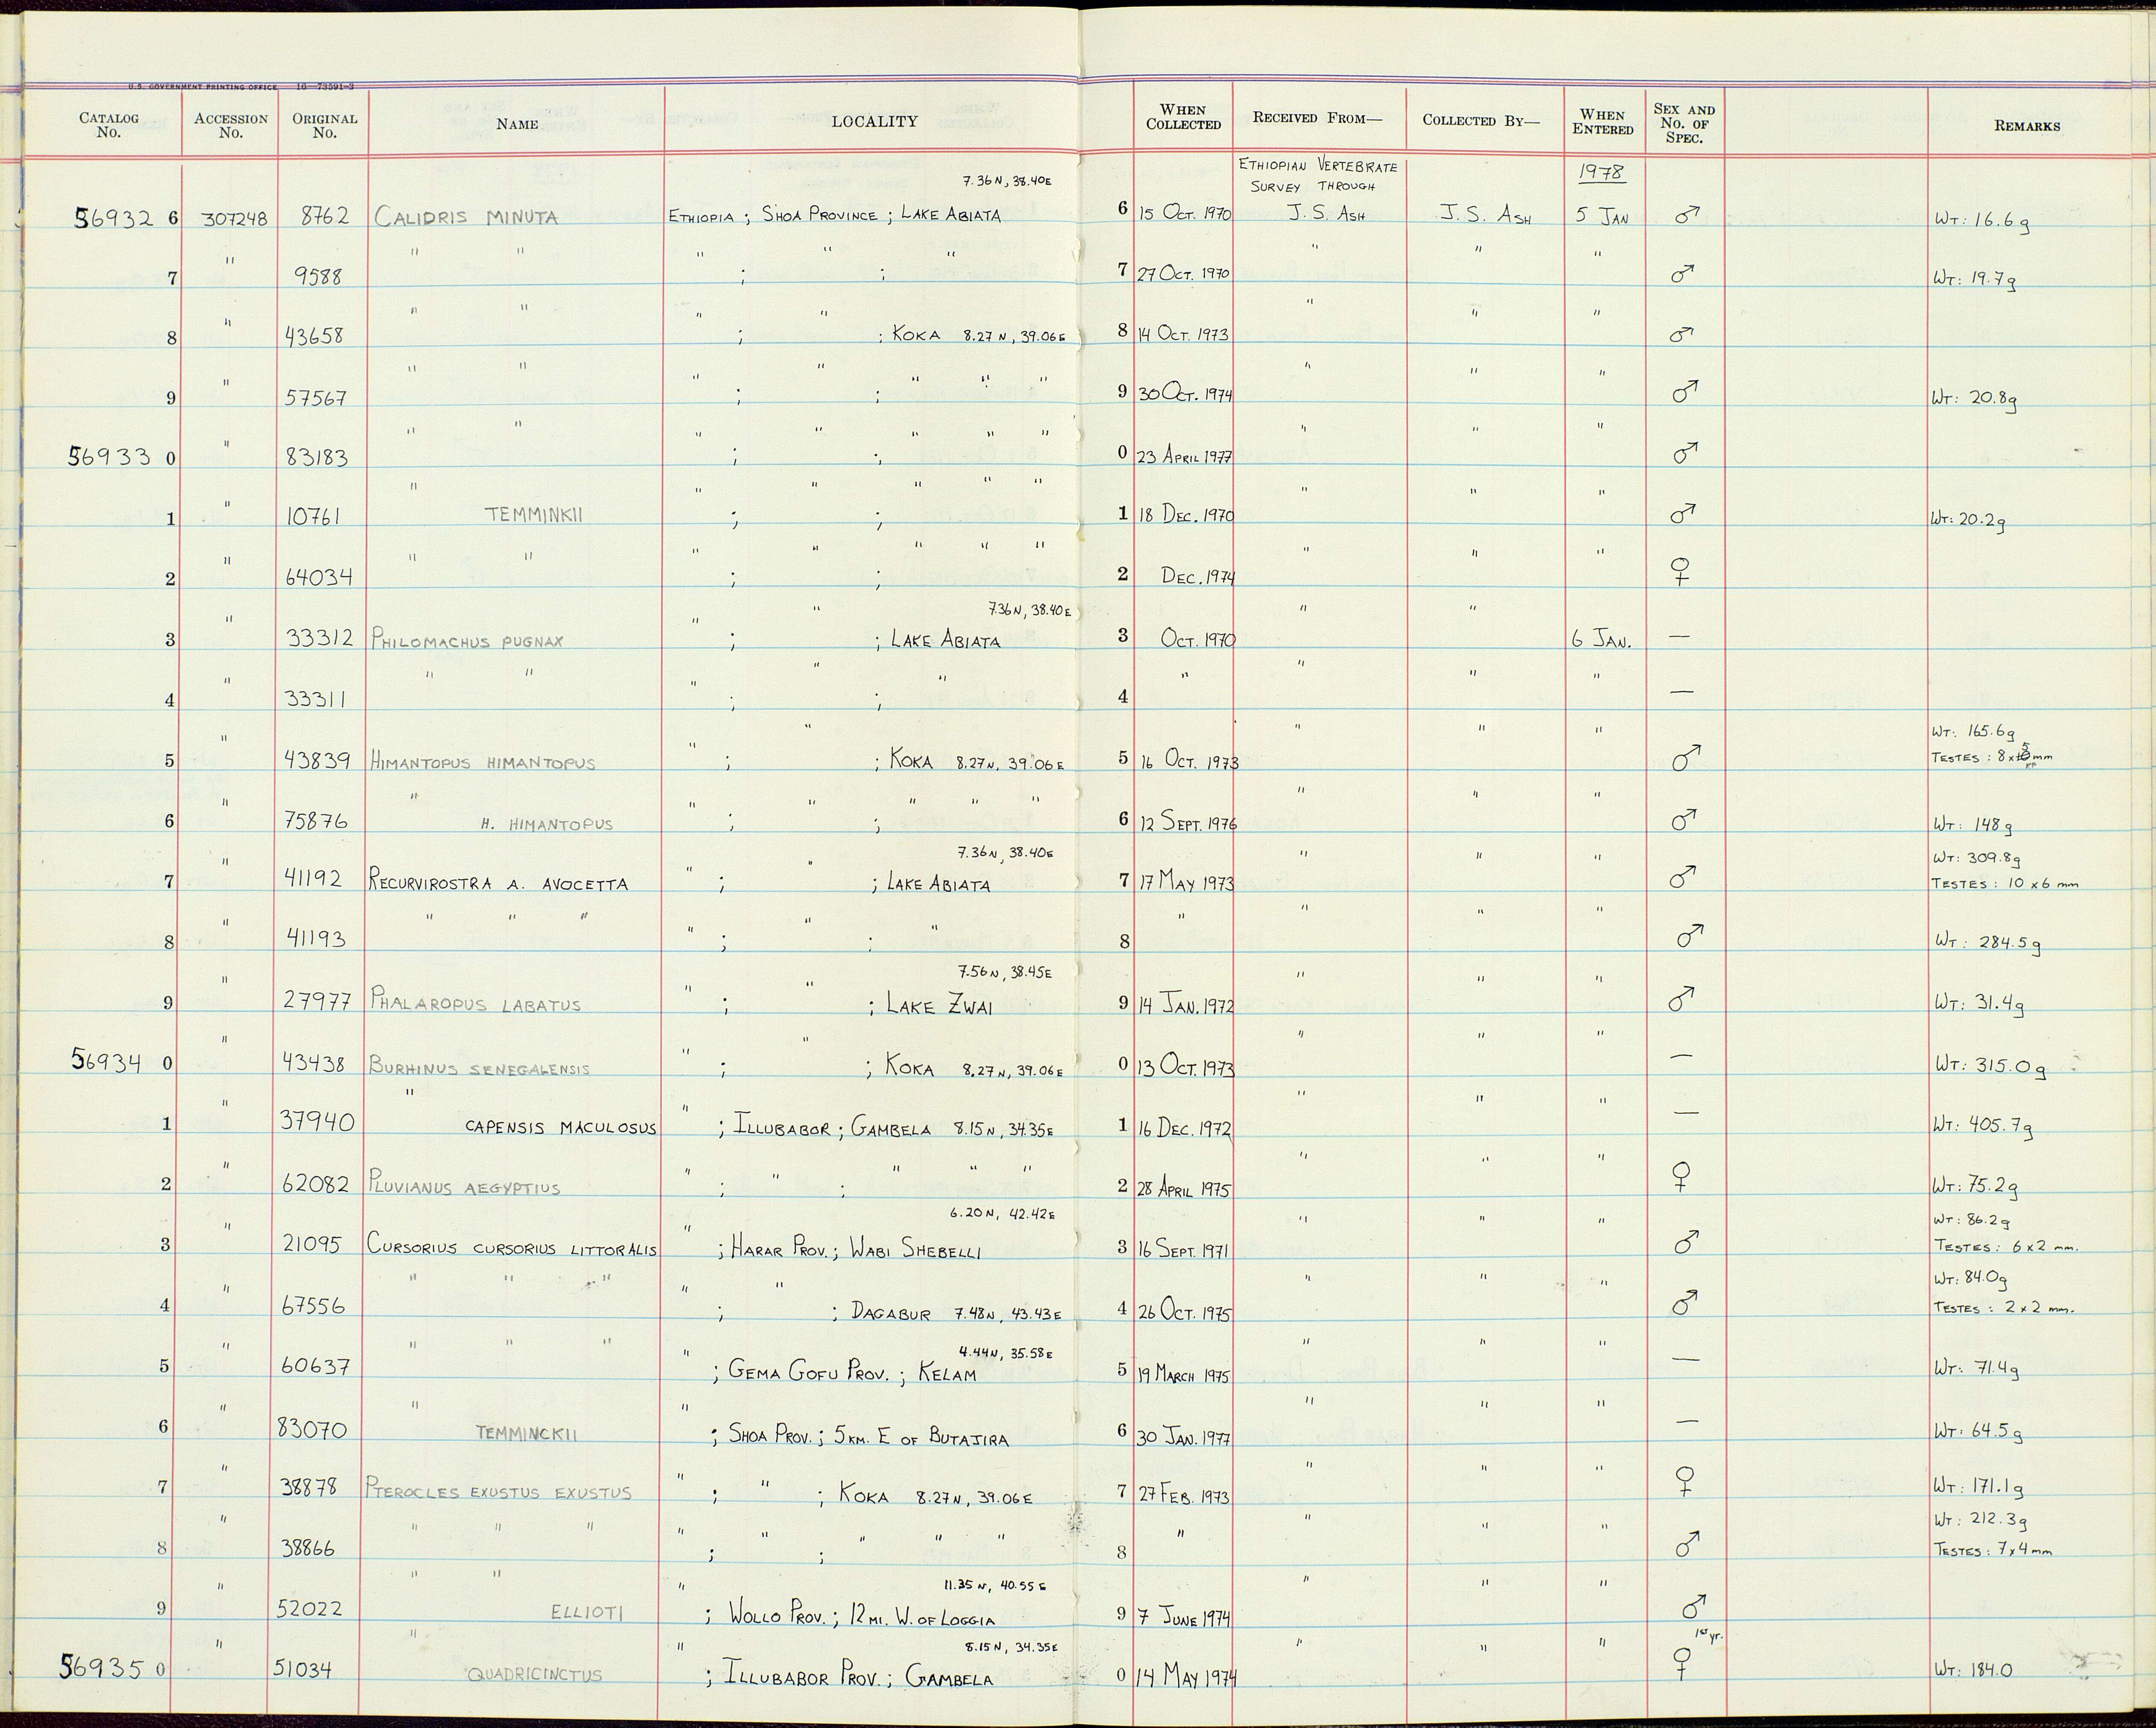 U.S. GOVERNMENT PRINTING OFFICE 16—73591-3
CATALOG No. ACCESSION No. ORIGINAL No. NAME LOCALITY WHEN COLLECTED RECEIVED FROM— COLLECTED BY— WHEN ENTERED SEX AND No. OF SPEC. REMARKS
ETHIOPIAN VERTEBRATE SURVEY THROUGH 1978
7.36N, 38.40E
56932 6 307248 8762 CALIDRIS MINUTA ETHIOPIA ; SHOA PROVINCE ; LAKE ABIATA 6 15 OCT. 1970 J. S. ASH J. S. ASH 5 JAN ♂ WT: 16.6g
7 " 9588 " " " ; " ; " 7 27 OCT. 1970 " " " ♂ WT: 19.7g
8 " 43658 " " " ; " ; KOKA 8.27N, 39.06E 8 14 OCT. 1973 " " " ♂
9 " 57567 " " " ; " ; " " " 9 30 OCT. 1974 " " " ♂ WT: 20.8g
56933 0 " 83183 " " " ; " ; " " " 0 23 APRIL 1977 " " " ♂
1 " 10761 " TEMMINKII " ; " ; " " " 1 18 DEC. 1970 " " " ♂ WT: 20.2g
2 " 64034 " " " ; " ; " " " 2 DEC. 1974 " " " ♀
7.36N, 38.40E
3 " 33312 PHILOMACHUS PUGNAX " ; " ; LAKE ABIATA 3 OCT. 1970 " " 6 JAN. —
4 " 33311 " " " ; " ; " 4 " " " " —
WT: 165.6g
5 " 43839 HIMANTOPUS HIMANTOPUS " ; " ; KOKA 8.27N, 39.06E 5 16 OCT. 1973 " " " ♂ TESTES : 8x5mm
6 " 75876 " H. HIMANTOPUS " ; " ; " " " 6 12 SEPT. 1976 " " " ♂ WT: 148g
7.36N, 38.40E WT: 309.8g
7 " 41192 RECURVIROSTRA A. AVOCETTA " ; " ; LAKE ABIATA 7 17 MAY 1973 " " " ♂ TESTES : 10 x6 mm
8 " 41193 " " " " ; " ; " 8 " " " " ♂ WT: 284.5g
7.56N, 38.45E
9 " 27977 PHALAROPUS LABATUS " ; " ; LAKE ZWAI 9 14 JAN. 1972 " " " ♂ WT: 31.4g
56934 0 " 43438 BURHINUS SENEGALENSIS " ; " ; KOKA 8.27N, 39.06E 0 13 OCT. 1973 " " " — WT: 315.0g
1 " 37940 " CAPENSIS MACULOSUS " ; ILLUBABOR ; GAMBELA 8.15N, 34.35E 1 16 DEC. 1972 " " " — WT: 405.7g
2 " 62082 PLUVIANUS AEGYPTIUS " ; " ; " " " 2 28 APRIL 1975 " " " ♀ WT: 75.2g
6.20N, 42.42E WT: 86.2g
3 " 21095 CURSORIUS CURSORIUS LITTORALIS " ; HARAR PROV.; WABI SHEBELLI 3 16 SEPT. 1971 " " " ♂ TESTES : 6x2 mm.
WT: 84.0g
4 " 67556 " " " " ; " ; DAGABUR 7.48N, 43.43E 4 26 OCT. 1975 " " " ♂ TESTES : 2x2 mm.
4.44N, 35.58E
5 " 60637 " " " " ; GEMA GOFU PROV. ; KELAM 5 19 MARCH 1975 " " " — WT: 71.4g
6 " 83070 " TEMMINCKII " ; SHOA PROV.; 5KM. E OF BUTAJIRA 6 30 JAN. 1977 " " " — WT: 64.5g
7 " 38878 PTEROCLES EXUSTUS EXUSTUS " ; " ; KOKA 8.27N, 39.06E 7 27 FEB. 1973 " " " ♀ WT: 171.1g
WT: 212.3g
8 " 38866 " " " " ; " ; " " " 8 " " " " ♂ TESTES : 7x4mm
11.35N, 40.55E
9 " 52022 " " ELLIOTI " ; WOLLO PROV.; 12MI. W. OF LOGGIA 9 7 JUNE 1974 " " " ♂
8.15N, 34.35E 1st yr.
56935 0 " 51034 " QUADRICINCTUS " ; ILLUBABOR PROV.; GAMBELA 0 14 MAY 1974 " " " ♀ WT: 184.0